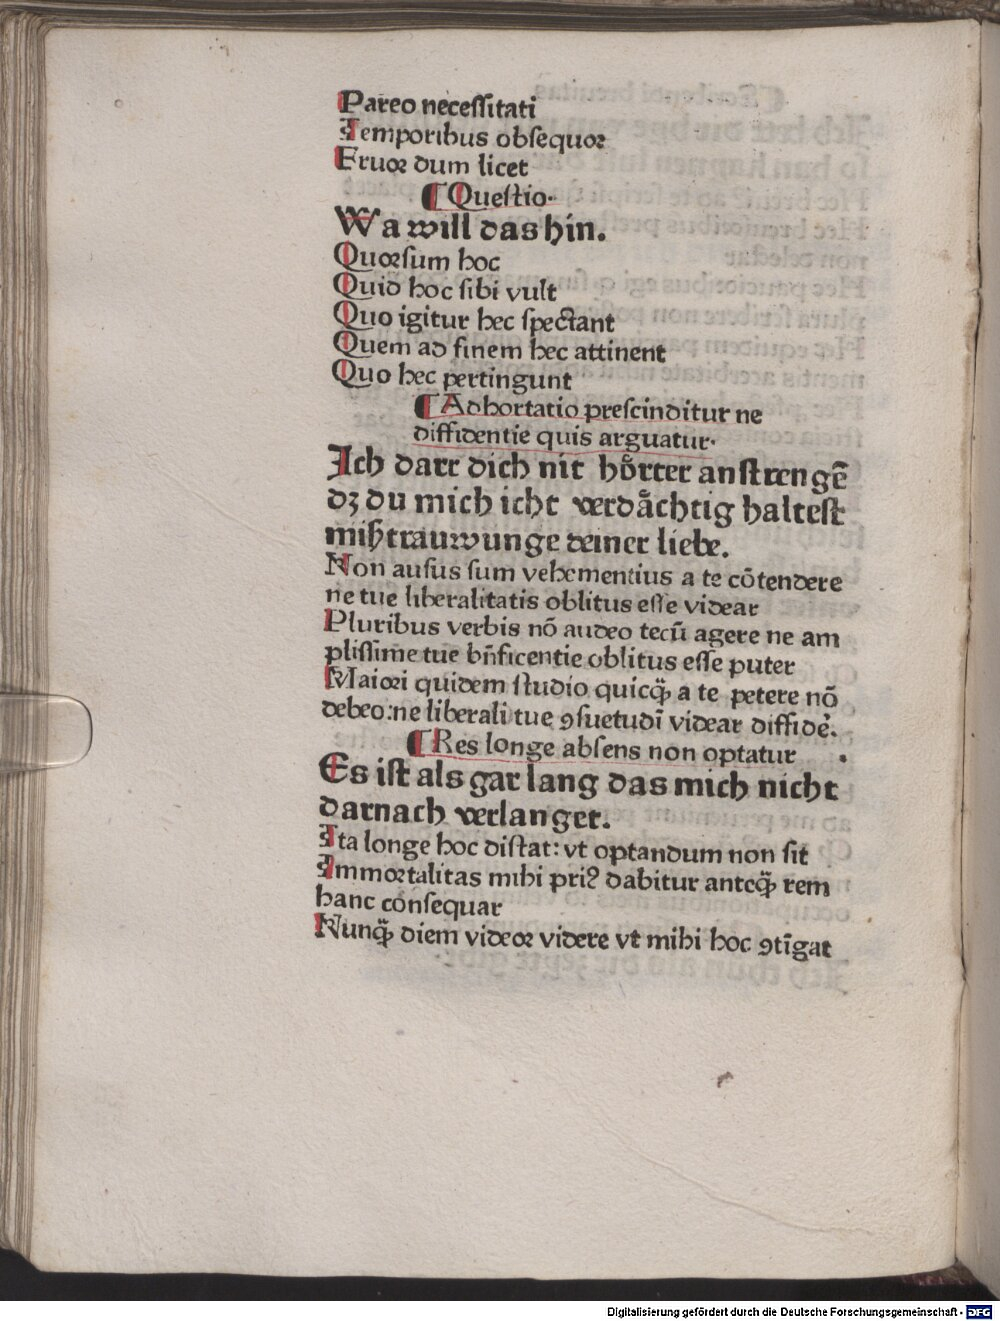 Pareo neceſſitati
Temporibus obſequor
Fruor dum licet
¶ Queſtio·
Wa will das hin.
Quorſum hoc
Quid hoc ſibi vult
Quo igitur hec ſpectant
Quem ad finem hec attinent
Quo hec pertingunt
¶ Adhortatio preſcinditur ne
diffidentie quis arguatur·
Ich darr dich nit hoͤrter anſtrengē
dꝫ du mich icht verdaͤchtig halteſt
miſztrauwunge deiner liebe.
Non auſus ſum vehementius a te cōtendere
ne tue liberalitatis oblitus eſſe videar
Pluribus verbis nō audeo tecū agere ne am
pliſſime tue bn̄ficentie oblitus eſſe puter
Maiori quidem ſtudio quicq̄ a te petere nō
debeo:ne liberali tue ꝯſuetudī videar diffidē.
¶ Res longe abſens non optatur
Es iſt als gar lang das mich nicht
darnach verlanget.
Ita longe hoc diſtat: vt optandum non ſit
Immortalitas mihi priꝰ dabitur anteq̄ rem
hanc conſequar
Nunq̄ diem videor videre vt mihi hoc ꝯtīgat
Digitalisierung gefördert durch die Deutsche Forschungsgemeinschaft - DFG